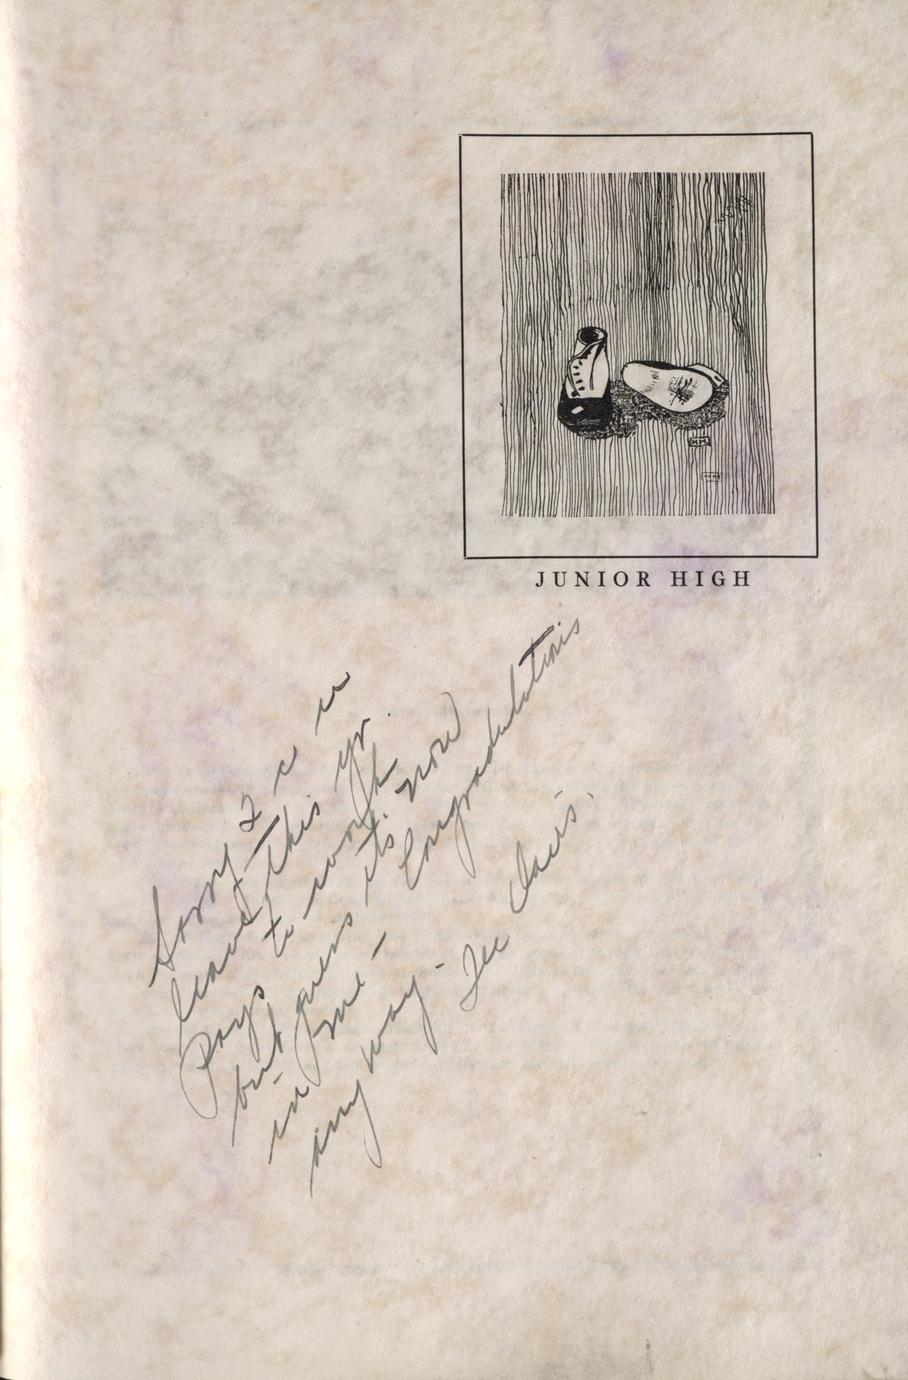 JUNIOR HIGH
Sorry 2 c u
leave this yr.
Pays to work
but guess its now
in me - Congradulations
any way.
Davis.